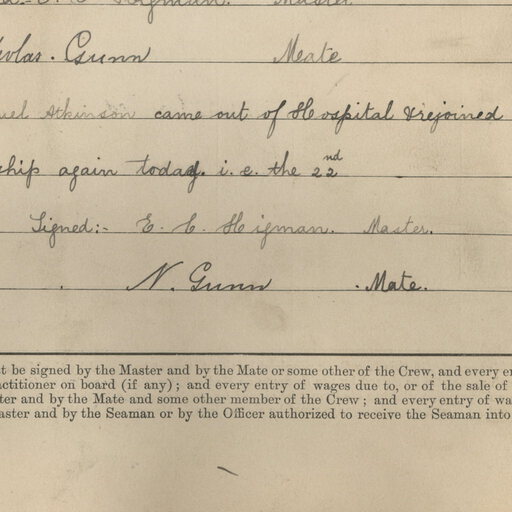 Higman. Master
Gunn Mate
Atkinson came out of Hospital & rejoined
ship again today. i.e. the 22nd
Signed:- E. C. Higman. Master.
N. Gunn Mate.
t be signed by the Master and by the Mate or some other of the Crew, and every en
actitioner on board (if any); and every entry of wages due to, or of the sale of
ter and by the Mate and some other member of the Crew; and every entry of wa
aster and by the Seaman or by the Officer authorized to receive the Seaman into